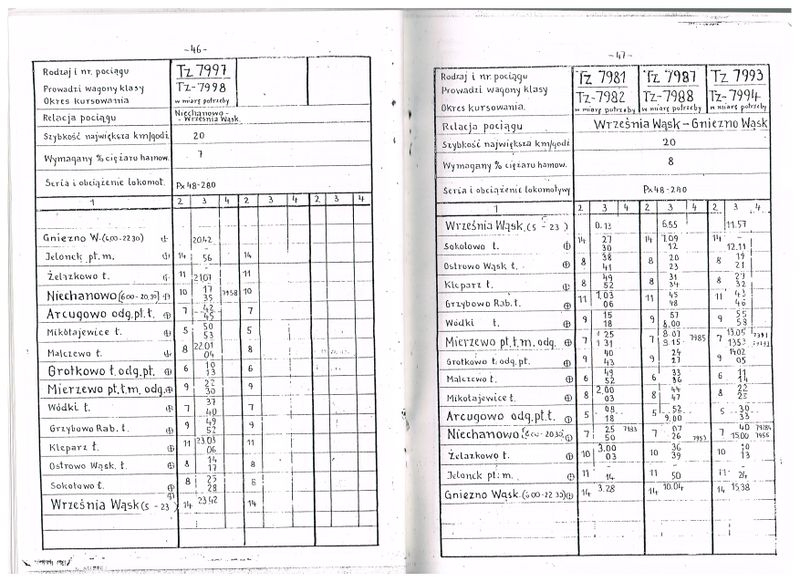 -46-
Rodzaj i nr. pociągu Tz 7997
Prowadzi wagony klasy Tz-7998
Okres kursowania w miarę potrzeby
Relacja pociągu Niechanowo-
-Września Wąsk.
Szybkość największa km/godz 20
Wymagany % ciężaru hamow. 7
Seria i obciążenie lokomot. Px48-280
1 2 3 4 2 3 4 2 3 4
Gniezno W. (6.00-22.30) 20.42
Jelonek pt.m. 14 56 14
Żelazkowo t. 11 21.07 11
Niechanowo (6.00-20.30) 10 17 7958 10
35
Arcugowo odg.p.t. 7 42 7
45
Mikołajewice t. 5 50 5
53
Malczewo t. 8 22.01 8
04
Grotkowo t.odg.pt. 6 10 6
13
Mierzewo pt,t.m,odg. 9 22 9
30
Wódki t. 7 37 7
40
Grzybowo Rab. t. 9 49 9
52
Kleparz t. 11 23.03 11
06
Ostrowo Wąsk. t. 8 14 8
17
Sokołowo t. 8 25 8
28
Września Wąsk (5 - 23) 14 23.42 14
-47-
Rodzaj i nr. pociągu Tz 7981 Tz 7987 Tz 7993
Prowadzi wagony klasy Tz-7982 Tz-7988 Tz-7994
Okres kursowania. w miarę potrzeby w miarę potrzeby w miarę potrzeby
Relacja pociągu Września Wąsk-Gniezno Wąsk
Szybkość największa km/godz 20
Wymagany % ciężaru hamow. 8
Seria i obciążenie lokomotywy Px48-240
1 2 3 4 2 3 4 2 3 4
Września Wąsk. (5 - 23) 0.13 6.55 11.57
Sokołowo t. 14 27 14 7.09 14
30 12 12.11
Ostrowo Wąsk t. 8 38 8 20 8 19
41 23 21
Kleparz t. 8 49 8 31 8 29
52 34 32
Grzybowo Rab. t. 11 1.03 11 45 11 43
06 48 46
Wódki t. 9 15 9 57 9 55
18 8.00 58
Mierzewo p.t,t.m, odg. 7 1 25 7 8.07 7985 7 13.05 7991
1 31 8.15 13.53
Grotkowo t.odg.pt 9 40 9 24 9 14.02
43 27 05
Malczewo t. 6 49 6 33 6 11
52 36 14
Mikołajewice t. 8 2.00 8 44 8 22
03 47 25
Arcugowo odg,pt.t. 5 08 5 52 5 30
18 9.00 33
Niechanowo (6.00-20.30) 7 25 7983 7 07 7 40
50 26 7953 15.00 7956
Żelazkowo t. 10 3.00 10 36 10 10
03 39 13
Jelonek pt.m. 11 14 11 50 11 24
Gniezno Wąsk (6.00-22.30) 14 3.28 14 10.04 14 15.38